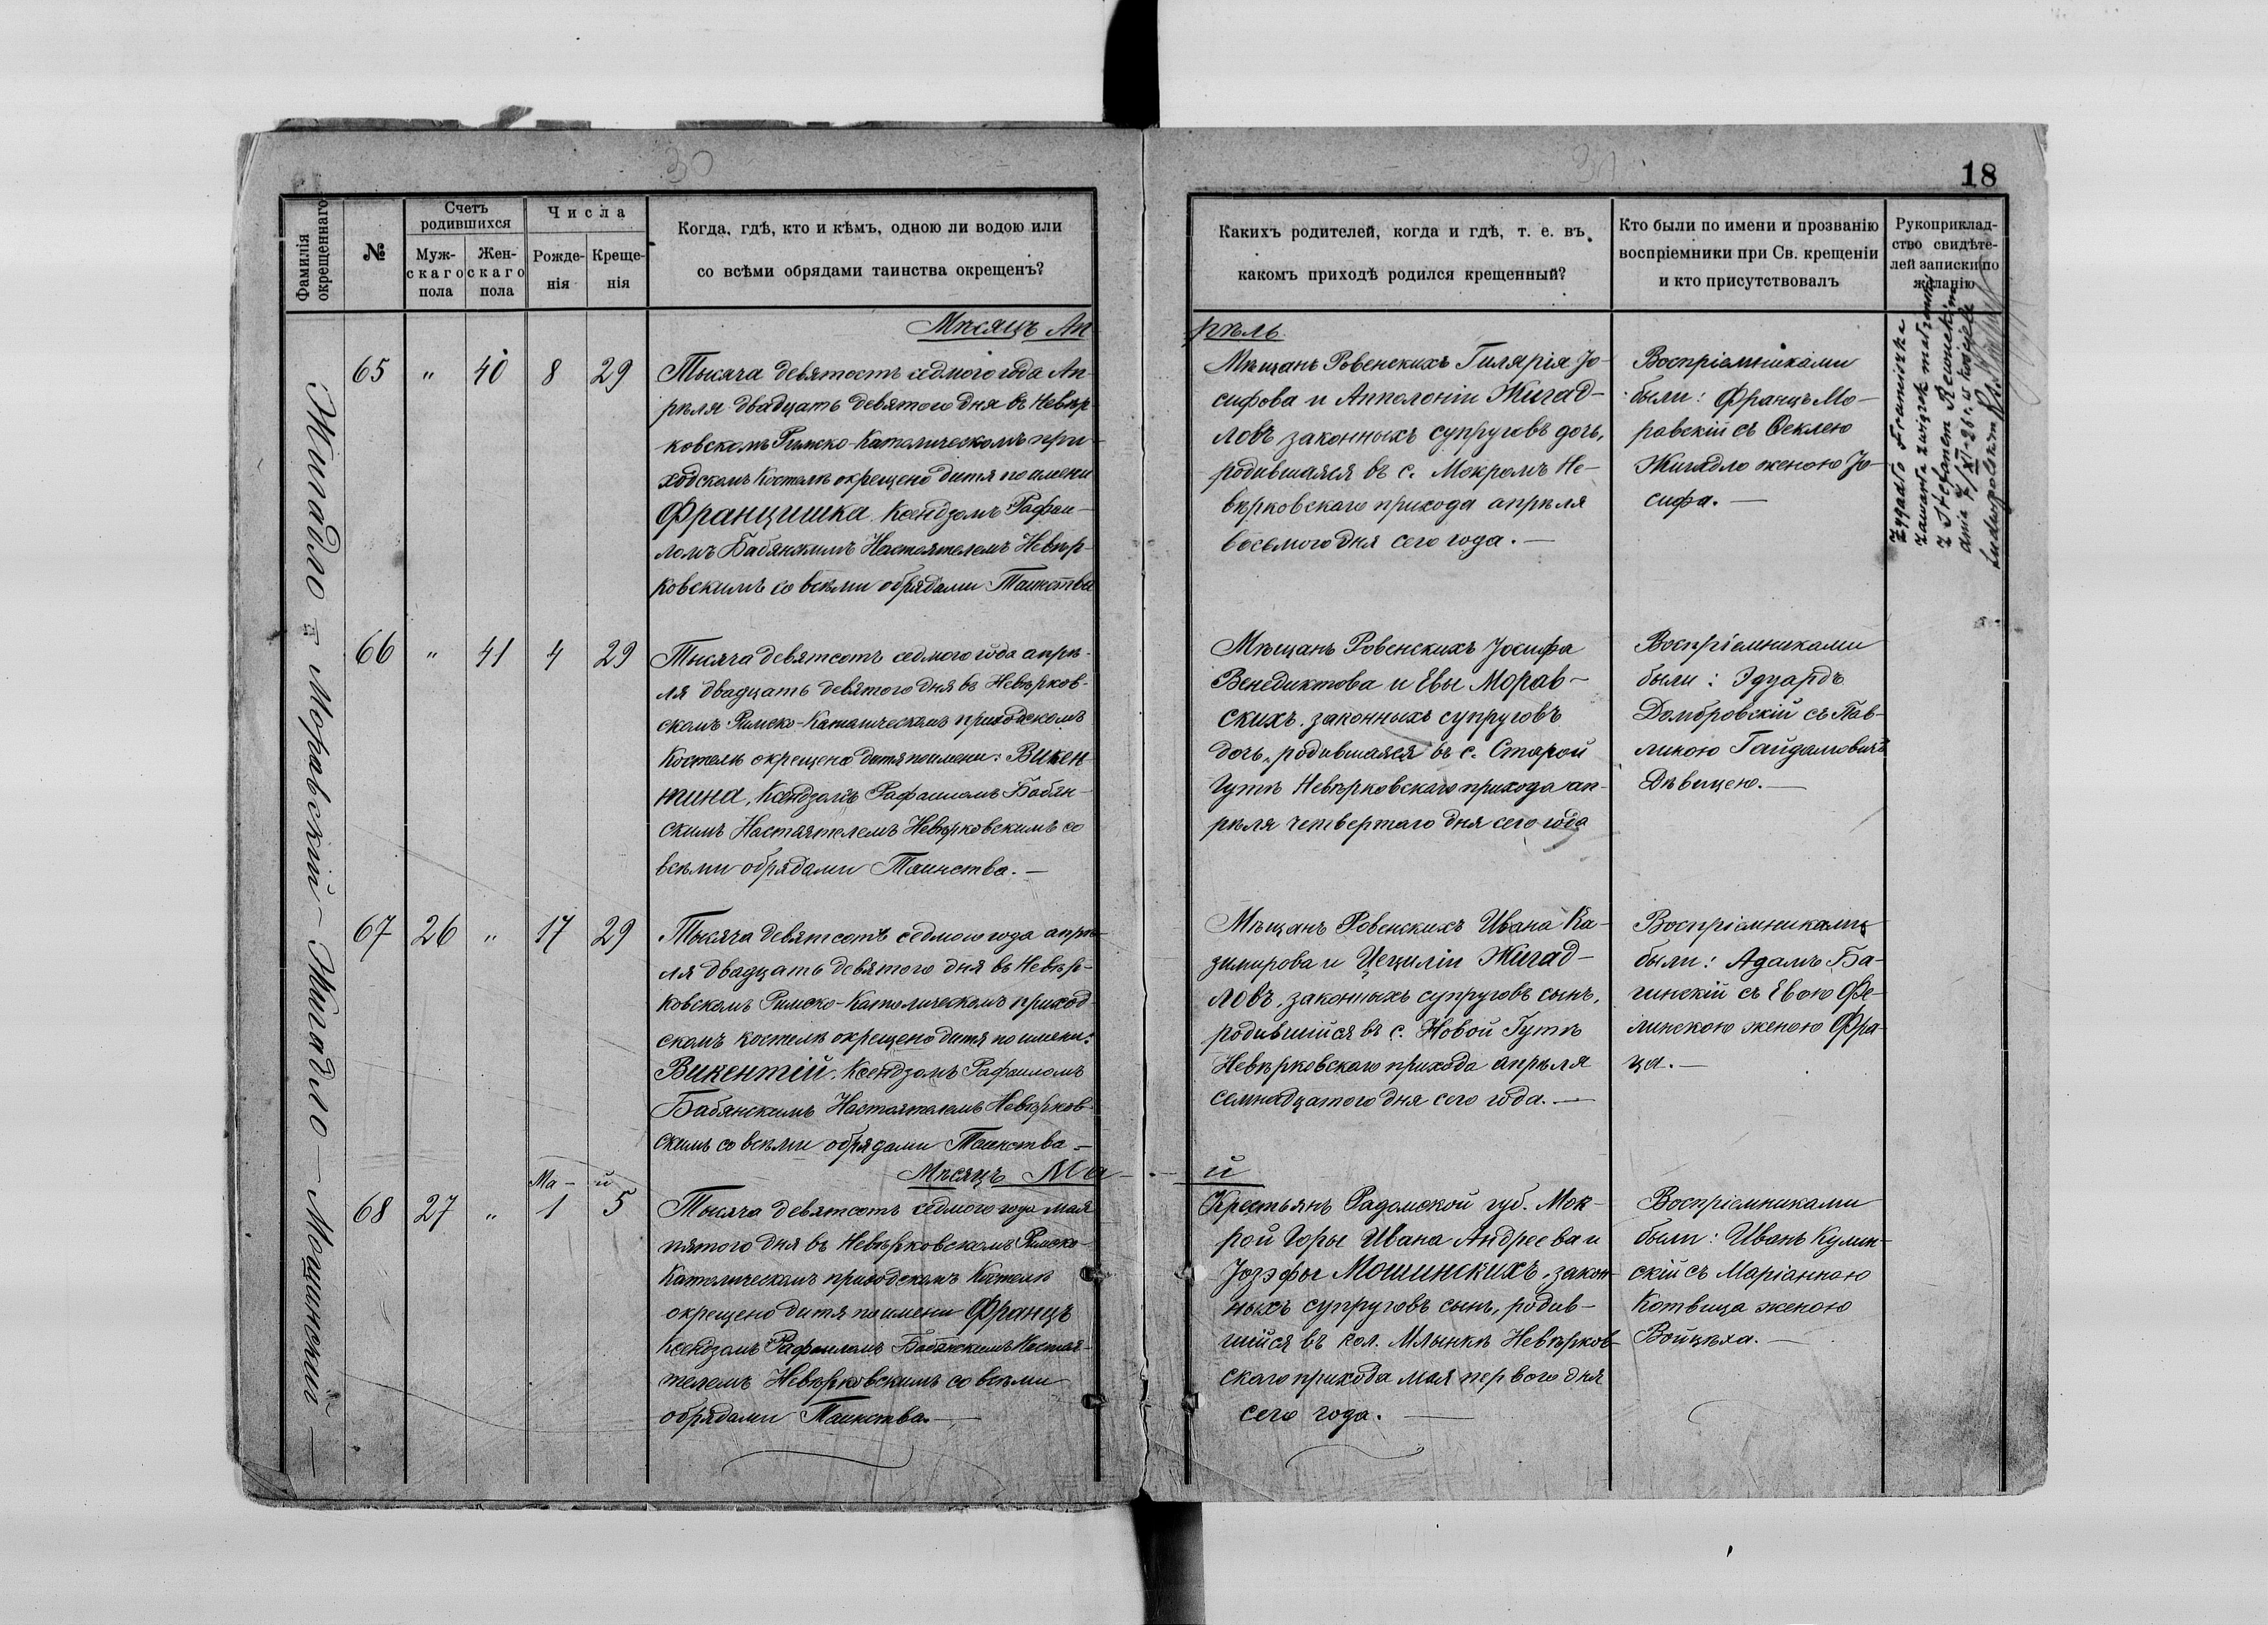 30
30
18
Фамилія окрещеннаго
№
Счетъ родившихся
Муж-
скаго
пола
Жен-
скаго
пола
Числа
Рожде-
нія
Креще-
нія
Когда, гдѣ, кто и кѣмъ, одною ли водою или
со всѣми обрядами таинства окрещенъ?
Какихъ родителей, когда и гдѣ, т. е. въ
какомъ приходѣ родился крещенный?
Кто были по имени и прозванію
воспріемники при Св. крещеніи
и кто присутствовалъ
Рукоприклад-
ство свидѣте-
лей записки по
желанію
Жигадло – Моравскій – Жигадло – Мошинскій –
Мѣсяцъ Ап
рѣль
65 " 40 8 29
Тысяча девятостъ седмого года Ап-
рѣля двадцать девятого дня въ Невѣр-
ковскомъ Римско-Католическомъ при-
ходскомъ Костелѣ окрещено дитя по имени
Францишка, Ксендзомъ Рафаи-
ломъ Бабянскимъ Настоятелемъ Невѣр-
ковскимъ со всѣми обрядами Таинства
Мѣщанъ Ровенскихъ Гилярія Іо-
сифова и Апполоніи Жигад-
ловъ законныхъ супруговъ дочь,
родившаяся въ с. Мокромъ Не-
вѣрковскаго прихода апрѣля
восьмого дня сего года. —
Воспріемниками
были: Францъ Мо-
равскій съ Ѳеклею
Жигадло женою Іо-
сифа. —
Żygadło Franciszka
zawarła związek małżeński
z Stefanem Rewuckim
dnia 7/XI-26 r. w kościele
Ludwipolskim
66 " 41 4 29
Тысяча девятсотъ седмого года апрѣ-
ля двадцать девятого дня въ Невѣрков-
скомъ Римско-Католическомъ приходскомъ
Костелѣ окрещено дитя по имени: Викен
тина, Ксендзомъ Рафаиломъ Бабян-
скимъ Настоятелемъ Невѣрковскимъ со
всѣми обрядами Таинства. —
Мѣщанъ Ровенскихъ Іосифа
Венедиктова и Евы Морав-
скихъ, законныхъ супруговъ
дочь, родившаяся въ с. Старой
Гутѣ Невѣрковскаго прихода ап-
рѣля четвертаго дня сего года
Воспріемниками
были: Эдуардъ
Домбровскій съ Пав-
линою Гайдамовичъ
Дѣвицею. —
67 26 " 17 29
Тысяча девятсотъ седмого года апрѣ-
ля двадцать девятого дня въ Невѣр-
ковскомъ Римско-Католическомъ приход-
скомъ костелѣ окрещено дитя по имени:
Викентій, Ксендзомъ Рафаиломъ
Бабянскимъ Настоятелемъ Невѣрков-
скимъ со всѣми обрядами Таинства –
Мѣщанъ Ровенскихъ Ивана Ка-
зимирова и Цециліи Жигад-
ловъ, законныхъ супруговъ сынъ,
родившійся въ с. Новой Гутѣ
Невѣрковскаго прихода апрѣля
семнадцатого дня сего года. —
Воспріемниками
были: Адамъ Ба-
гинскій съ Евою Фе-
линскою женою Фра-
ца. —
Мѣсяцъ Ма
й
Ма – й
68 27 " 1 5
Тысяча девятсотъ седмого года мая
пятого дня въ Невѣрковскомъ Римско-
Католическомъ приходскомъ Костелѣ
окрещено дитя по имени Францъ
Ксендзомъ Рафаиломъ Бабянскимъ Настоя-
телемъ Невѣрковскимъ со всѣми
обрядами Таинства. —
Крестьянъ Радомской губ. Мок-
рой Горы Ивана Андреева и
Іозэфы Мошинскихъ, закон-
ныхъ супруговъ сынъ, родив-
шійся въ кол. Млынкѣ Невѣрков-
скаго прихода мая первого дня
сего года. —
Воспріемниками
были: Иванъ Кулин-
скій съ Маріанною
Котвица женою
Войцѣха. —